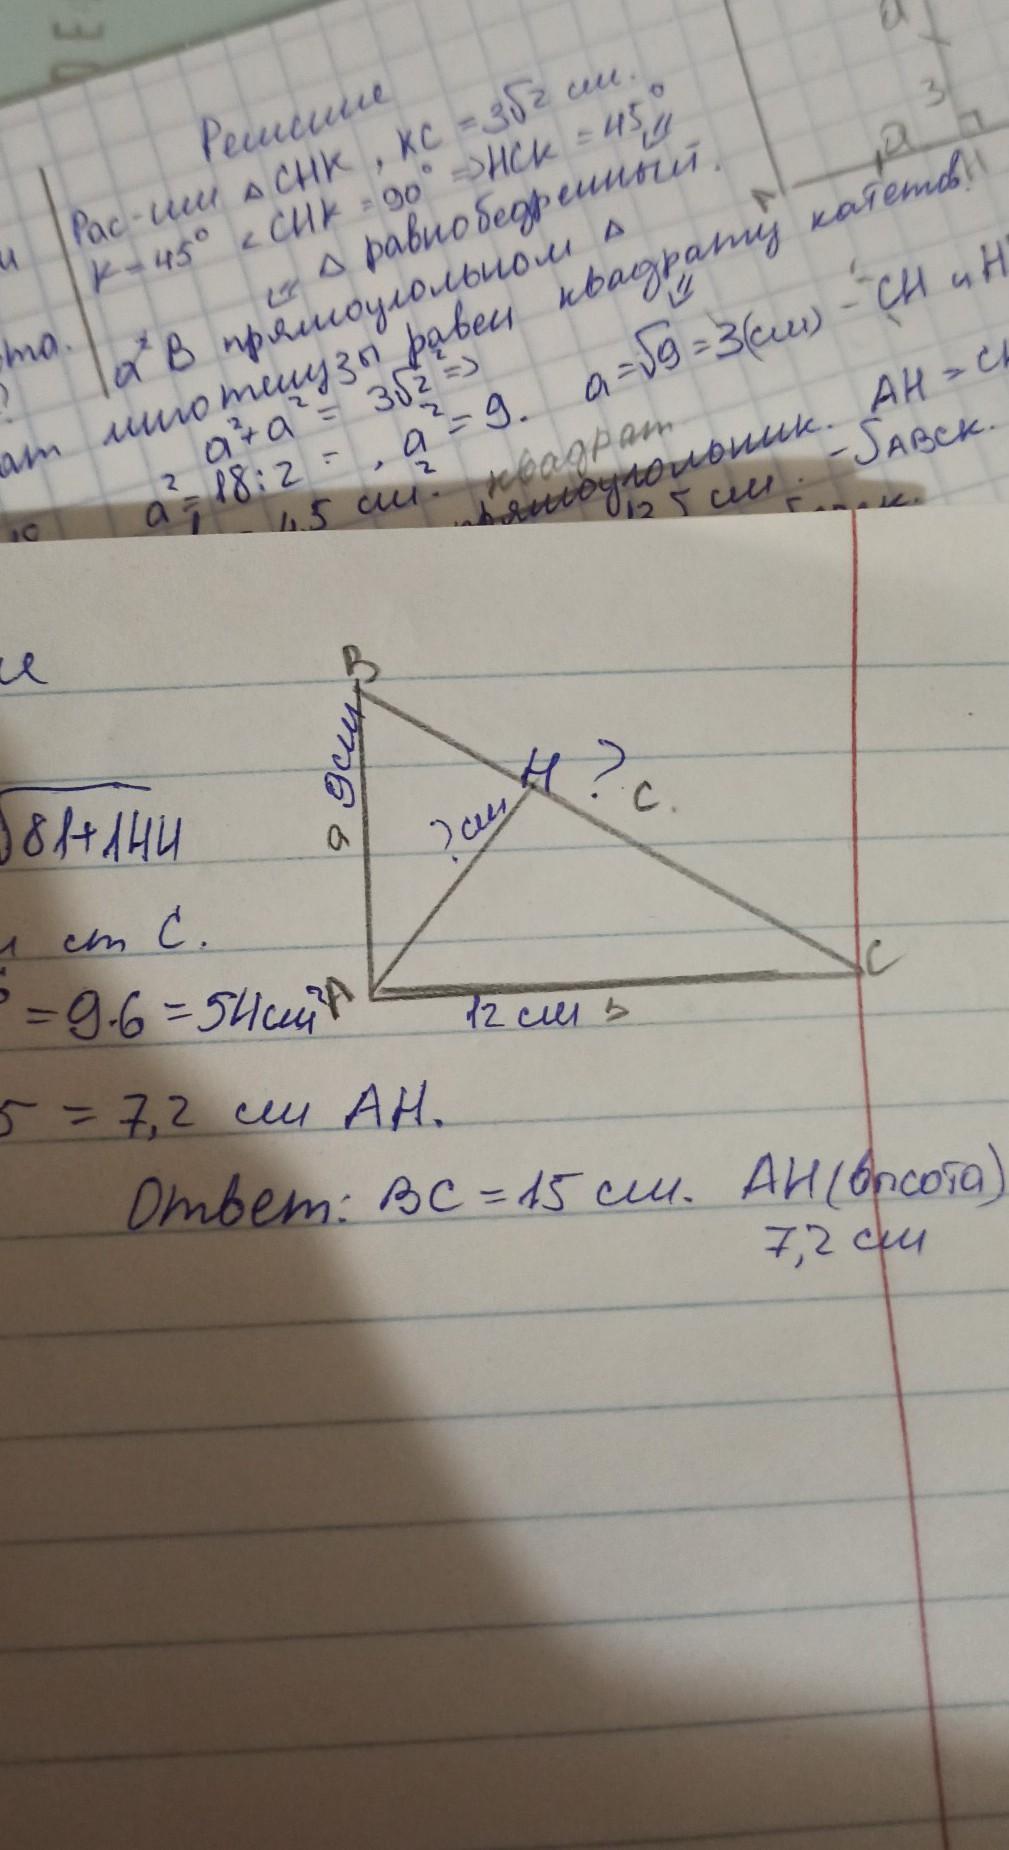 Решение
Рас-им △ CHK, KC = 3√2 см.
K = 45° < CHK = 90° => HCK = 45°
△ равнобедренный.
В прямоугольном △
равен квадрату катетов!
a² + a² = 3√2² =>
a² = 18:2 = , a² = 9. a = √9 = 3(см) - CH и H
4,5 см². квадрат
прямоугольник. AH = CK
12,5 см. - SABCK.
a
3
a
B
9см
a
H
?
?см
C.
A
C
12 см b
√81+144
ст C.
= 9·6 = 54см²
5 = 7,2 см AH.
Ответ: BC = 15 см. AH (высота)
7,2 см